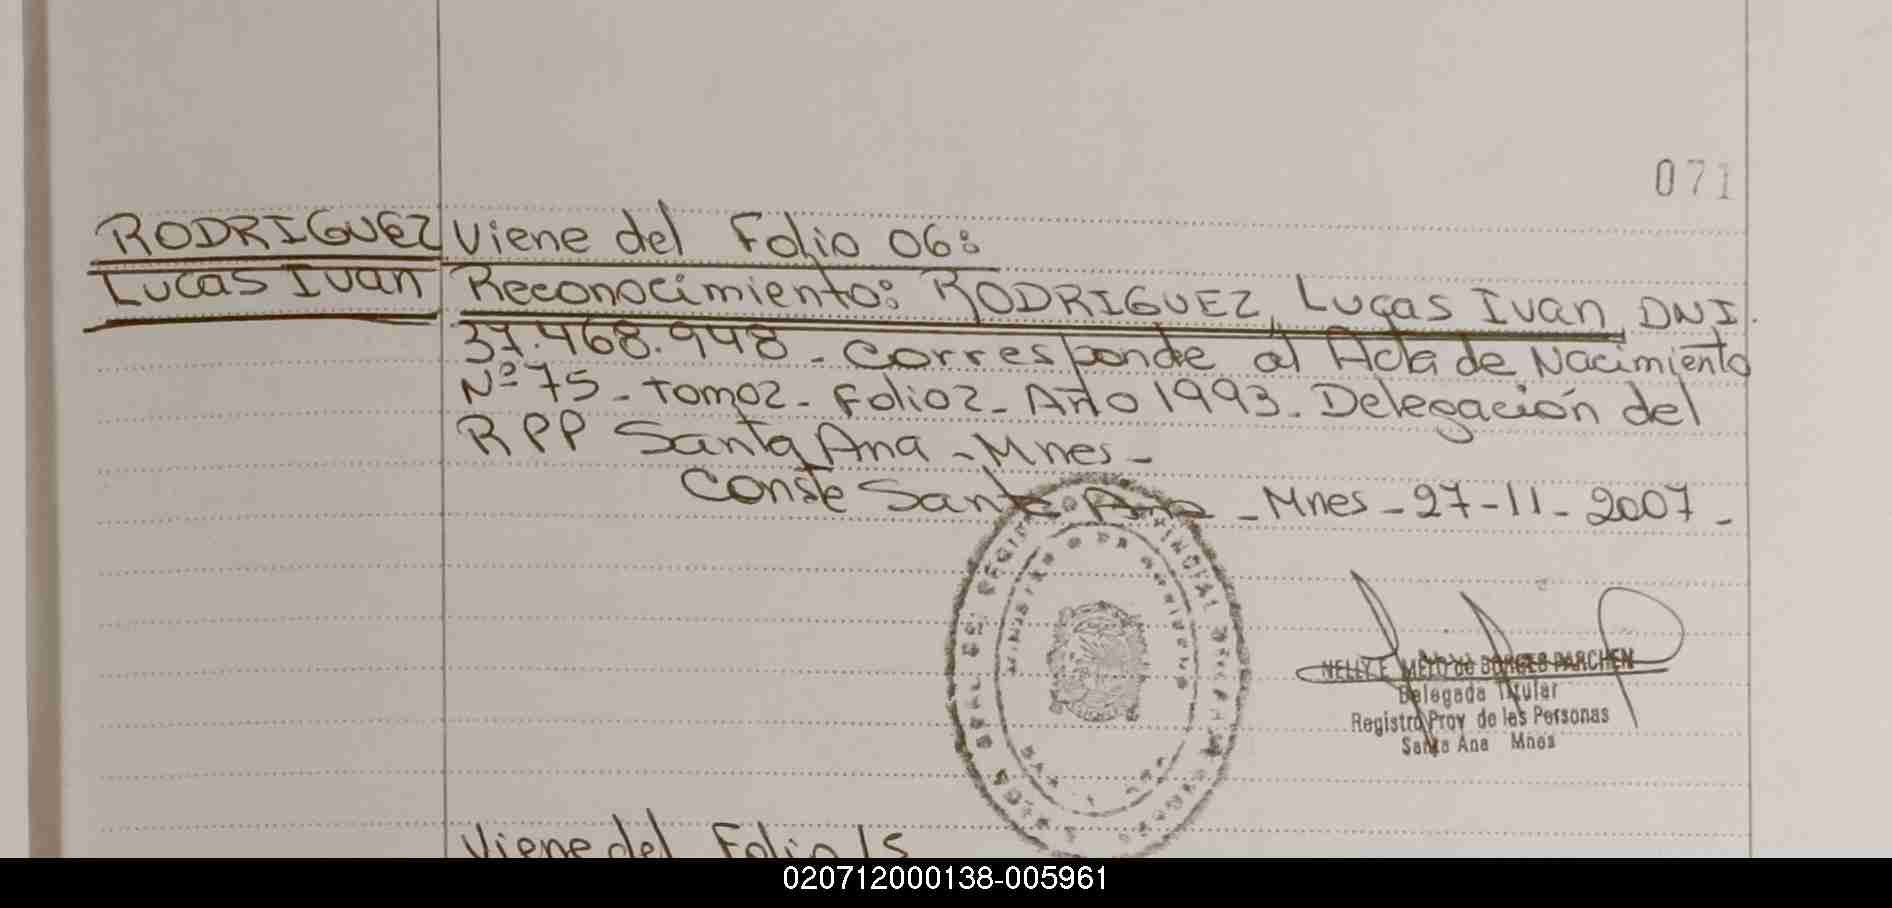 071
RODRIGUEZ Viene del Folio 06:
Lucas Ivan Reconocimiento: RODRIGUEZ, Lucas Ivan, DNI.
37.468.948 - Corresponde al Acta de Nacimiento
Nº 75 - Tomo 2 - Folio 2 - Año 1993 - Delegación del
RPP Santa Ana - Mnes -
Conste Santa Ana - Mnes - 27-11-2007 -
NELLY E MELO de BORGES PARCHEN
Delegada Titular
Registro Prov de las Personas
Santa Ana Mnes
Viene del Folio 15
020712000138-005961